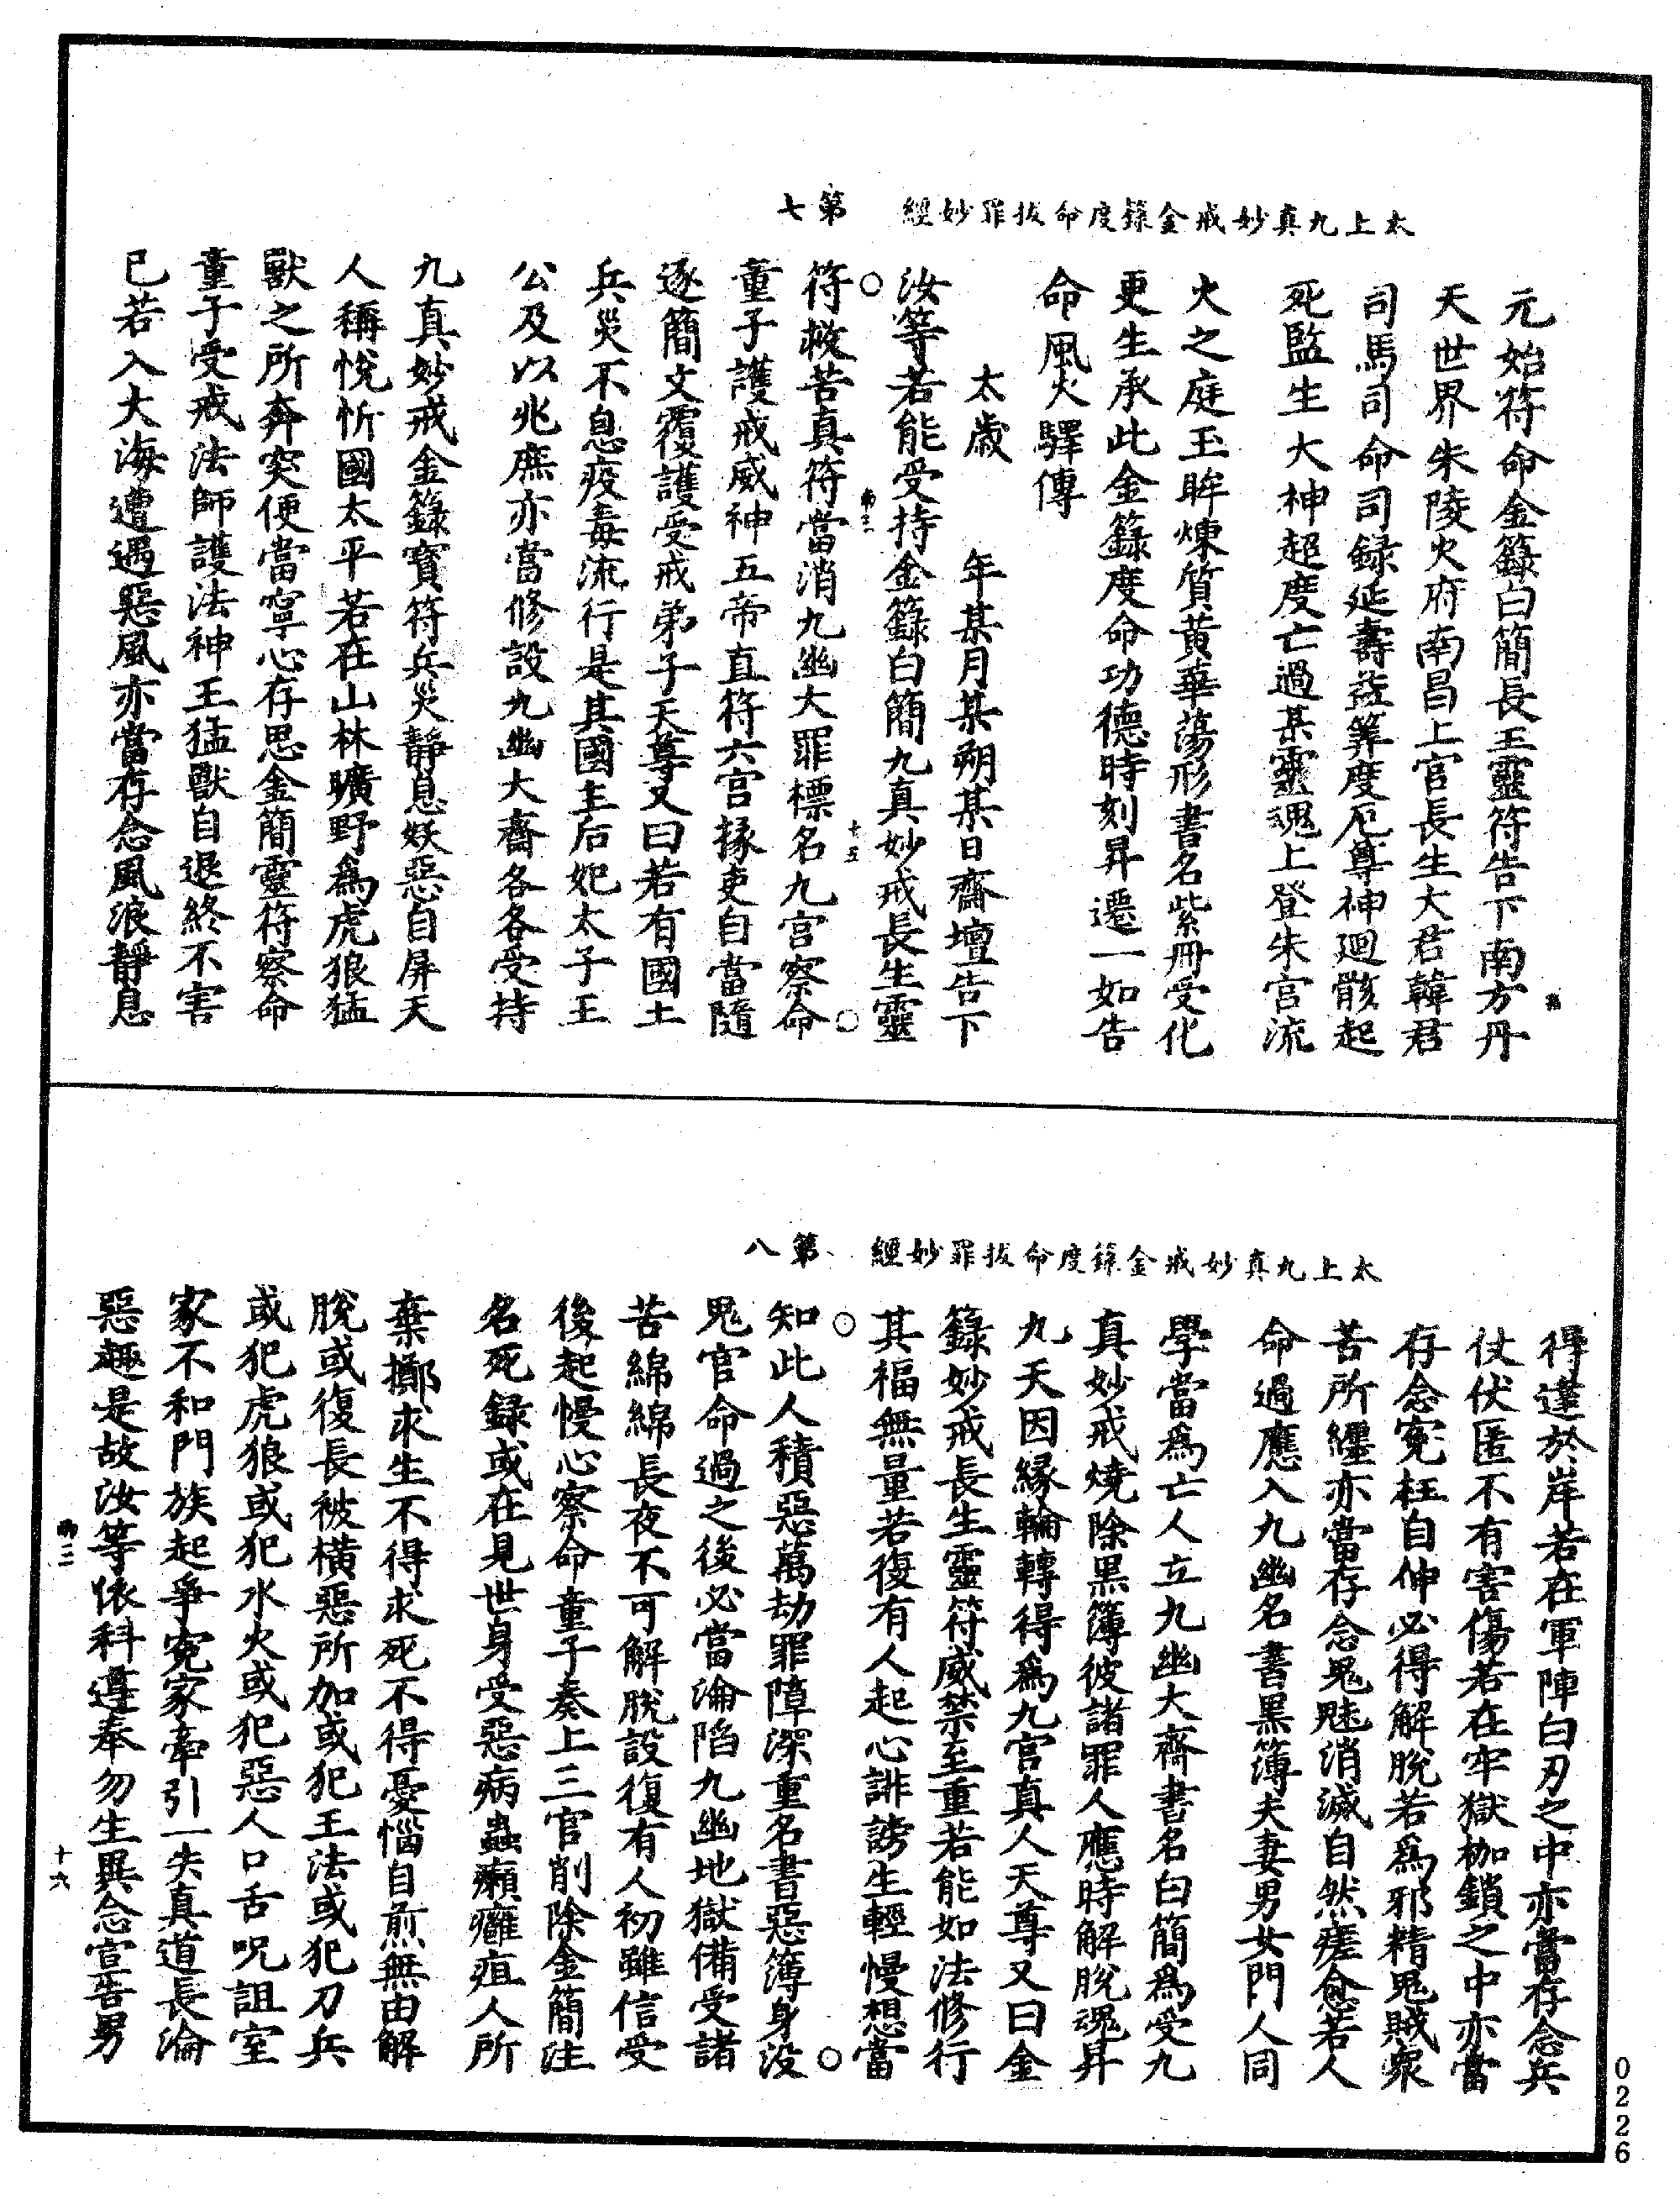 太上九真妙戒金籙度命拔罪妙經　第七
元始符命金籙白簡長生靈符告下南方丹
天世界朱陵火府南昌上官長生大君韓君
司馬司命司録延壽益筭度厄尊神迴骸起
死監生大神超度亡過某靈魂上登朱宮流
火之庭玉眸煉質黃華蕩形書名紫冊受化
更生承此金籙度命功德時刻昇遷一如告
命風火驛傳
太歲　年某月某朔某日齋壇告下
汝等若能受持金籙白簡九真妙戒長生靈
十五
符救苦真符當消九幽大罪標名九宮察命
童子護戒威神五帝直符六宮掾吏自當隨
逐簡文覆護受戒弟子天尊又曰若有國土
兵災不息疫毒流行是其國主后妃太子王
公及以兆庶亦當修設九幽大齋各各受持
九真妙戒金籙寶符兵災靜息妖惡自屏天
人稱悅忻國太平若在山林曠野為虎狼猛
獸之所奔突便當寧心存思金簡靈符察命
童子受戒法師護法神王猛獸自退終不害
已若入大海遭遇惡風亦當存念風浪靜息
太上九真妙戒金籙度命拔罪妙經　第八
得達於岸若在軍陣白刃之中亦當存念兵
仗伏匿不有害傷若在牢獄枷鎖之中亦當
存念寃枉自伸必得解脫若為邪精鬼賊衆
苦所纏亦當存念鬼魅消滅自然痊愈若人
命過應入九幽名書黑簿夫妻男女門人同
學當為亡人立九幽大齋書名白簡為受九
真妙戒燒除黑簿彼諸罪人應時解脫魂昇
九天因緣輪轉得為九宮真人天尊又曰金
籙妙戒長生靈符威禁至重若能如法修行
其福無量若復有人起心誹謗生輕慢想當
知此人積惡萬劫罪障深重名書惡簿身没
鬼官命過之後必當淪陷九幽地獄備受諸
苦綿綿長夜不可解脫設復有人初雖信受
後起慢心察命童子奏上三官削除金簡注
名死録或在見世身受惡病蟲癩癰疽人所
棄擲求生不得求死不得憂惱自煎無由解
脫或復長被橫惡所加或犯王法或犯刀兵
或犯虎狼或犯水火或犯惡人口舌呪詛室
家不和門族起爭寃家牽引一失真道長淪
惡趣是故汝等依科遵奉勿生異念宣告男
十六
0226